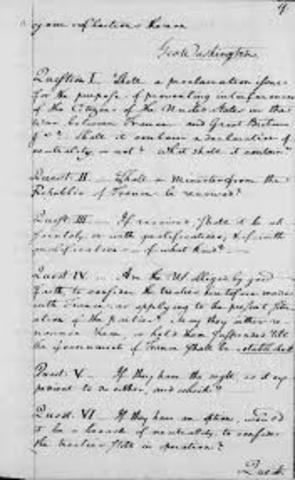 9
upon reflections thereon
Geo Washington
Question I. Shall a proclamation issue
for the purpose of preventing interferences
of the Citizens of the United States in the
war between France and Great Britain
&ca? Shall it contain a declaration of
neutrality or not? What shall it contain?
Quest II — Shall a Minister from the
Republic of France be received?
Quest III — If received shall it be ab-
solutely or with qualifications, & if with
qualifications — of what kind?
Quest IV — Are the U.S. obliged by good
faith to consider the treaties heretofore made
with France as applying to the present situ-
ation of the parties? may they either re-
nounce them or hold them suspended till
the Government of France shall be established
Quest V — If they have the right, is it ex-
pedient to do either, and which?
Quest VI — If they have an option, would
it be a breach of neutrality to consider
the treaties still in operation?
Quest